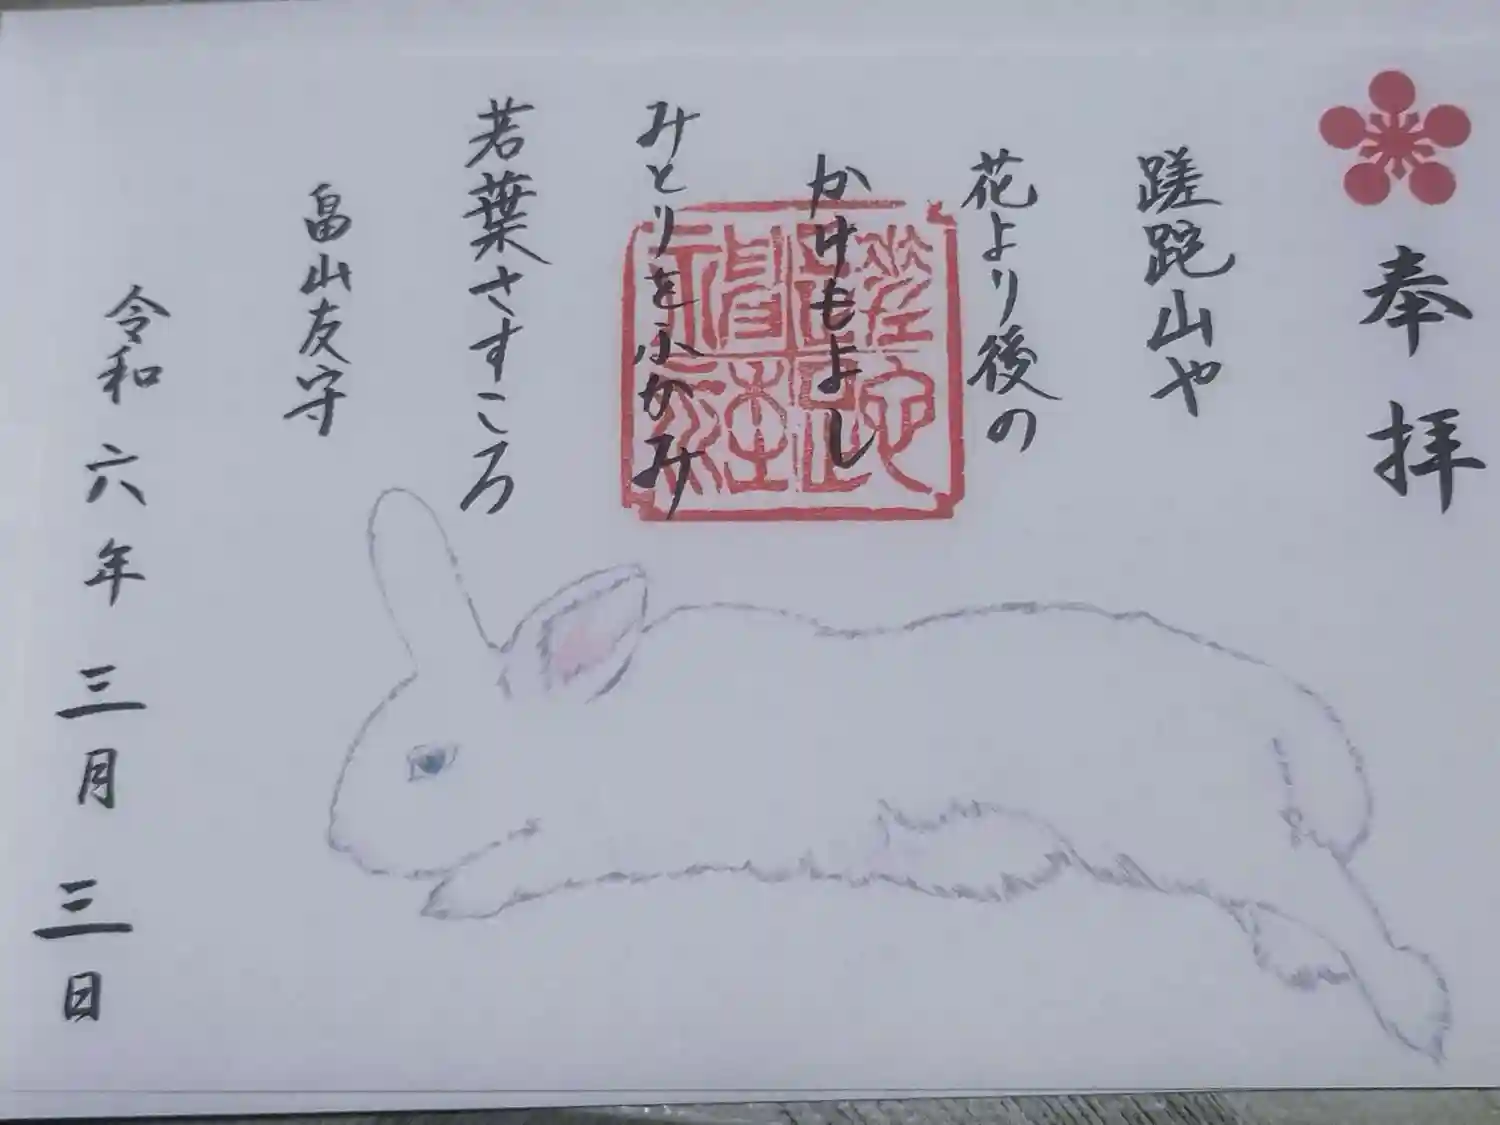 奉拝
蹉跎山や
花より後の
かけもよし
みとりをふかみ
若葉さすころ
畠山友守
令和六年三月三日